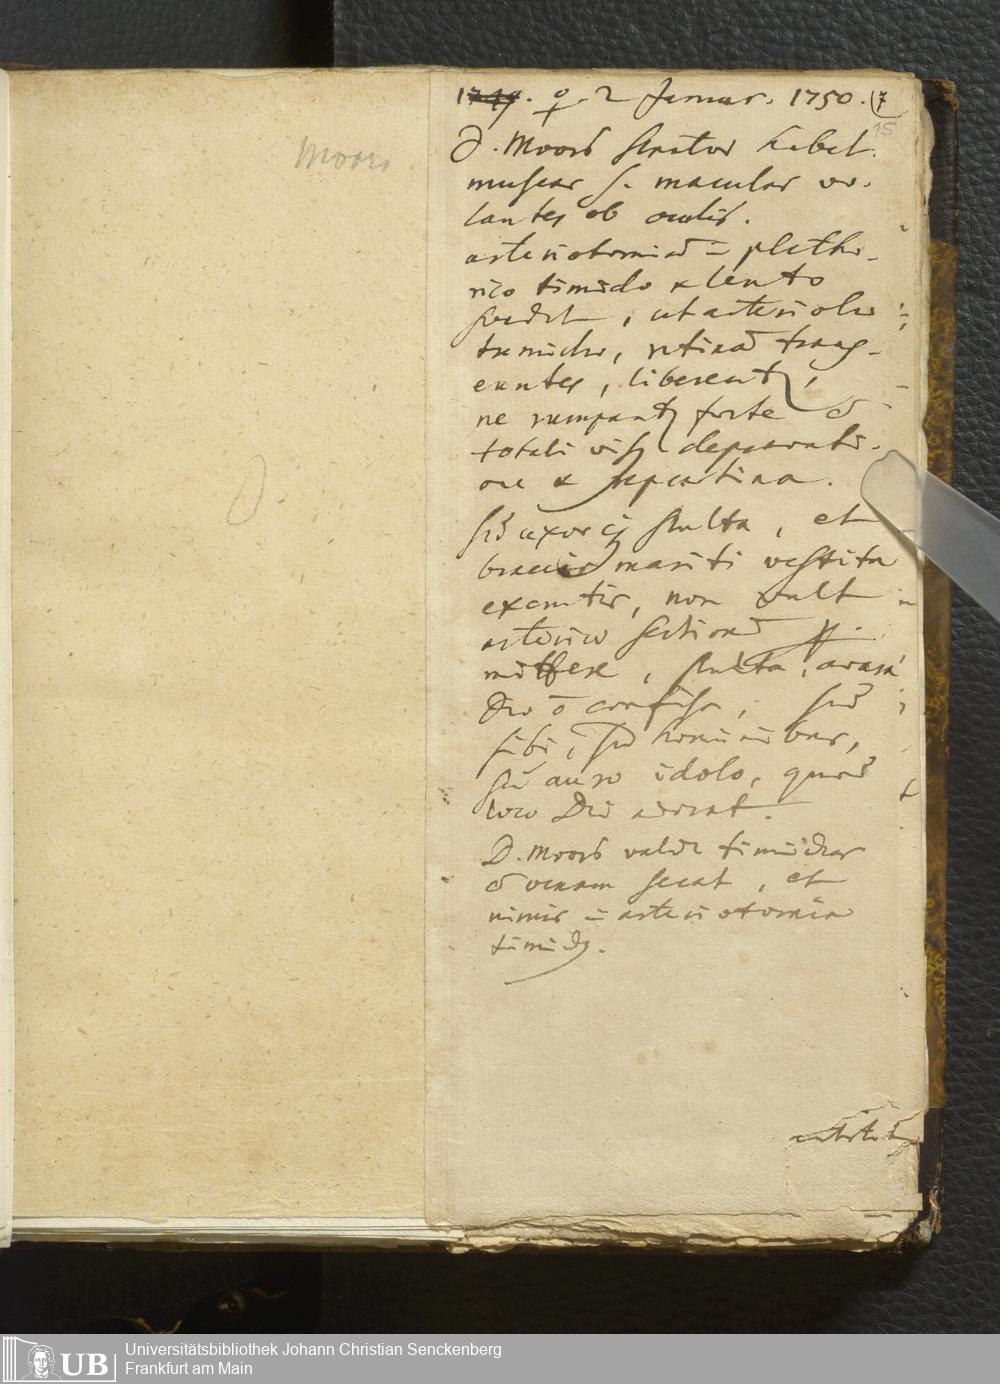 Moors
1749. ♀. 2 Januar. 1750. (7
15
D. Moors Senator habet
muscas s. maculas vo-
lantes ob oculis.
arteriotomiam in pletho-
rico timido & lento
suadet, ut arteriolae
tumidae, retinam trans-
euntes, liberentur,
ne rumpantur forte cum
totali visus depravati-
one & repentina.
Sed uxor ejus stulta, et
braccis mariti vestita
exemtis, non vult
arteriae sectionem
mittere, stulta, avara
Deo non confisa, sed
sibi, sed hominibus,
sed auro idolo, quod
loco Dei adorat.
D. Moors valde timidus
cum venam secat, et
nimis in arteriotomia
timidus.
UB
Universitätsbibliothek Johann Christian Senckenberg
Frankfurt am Main